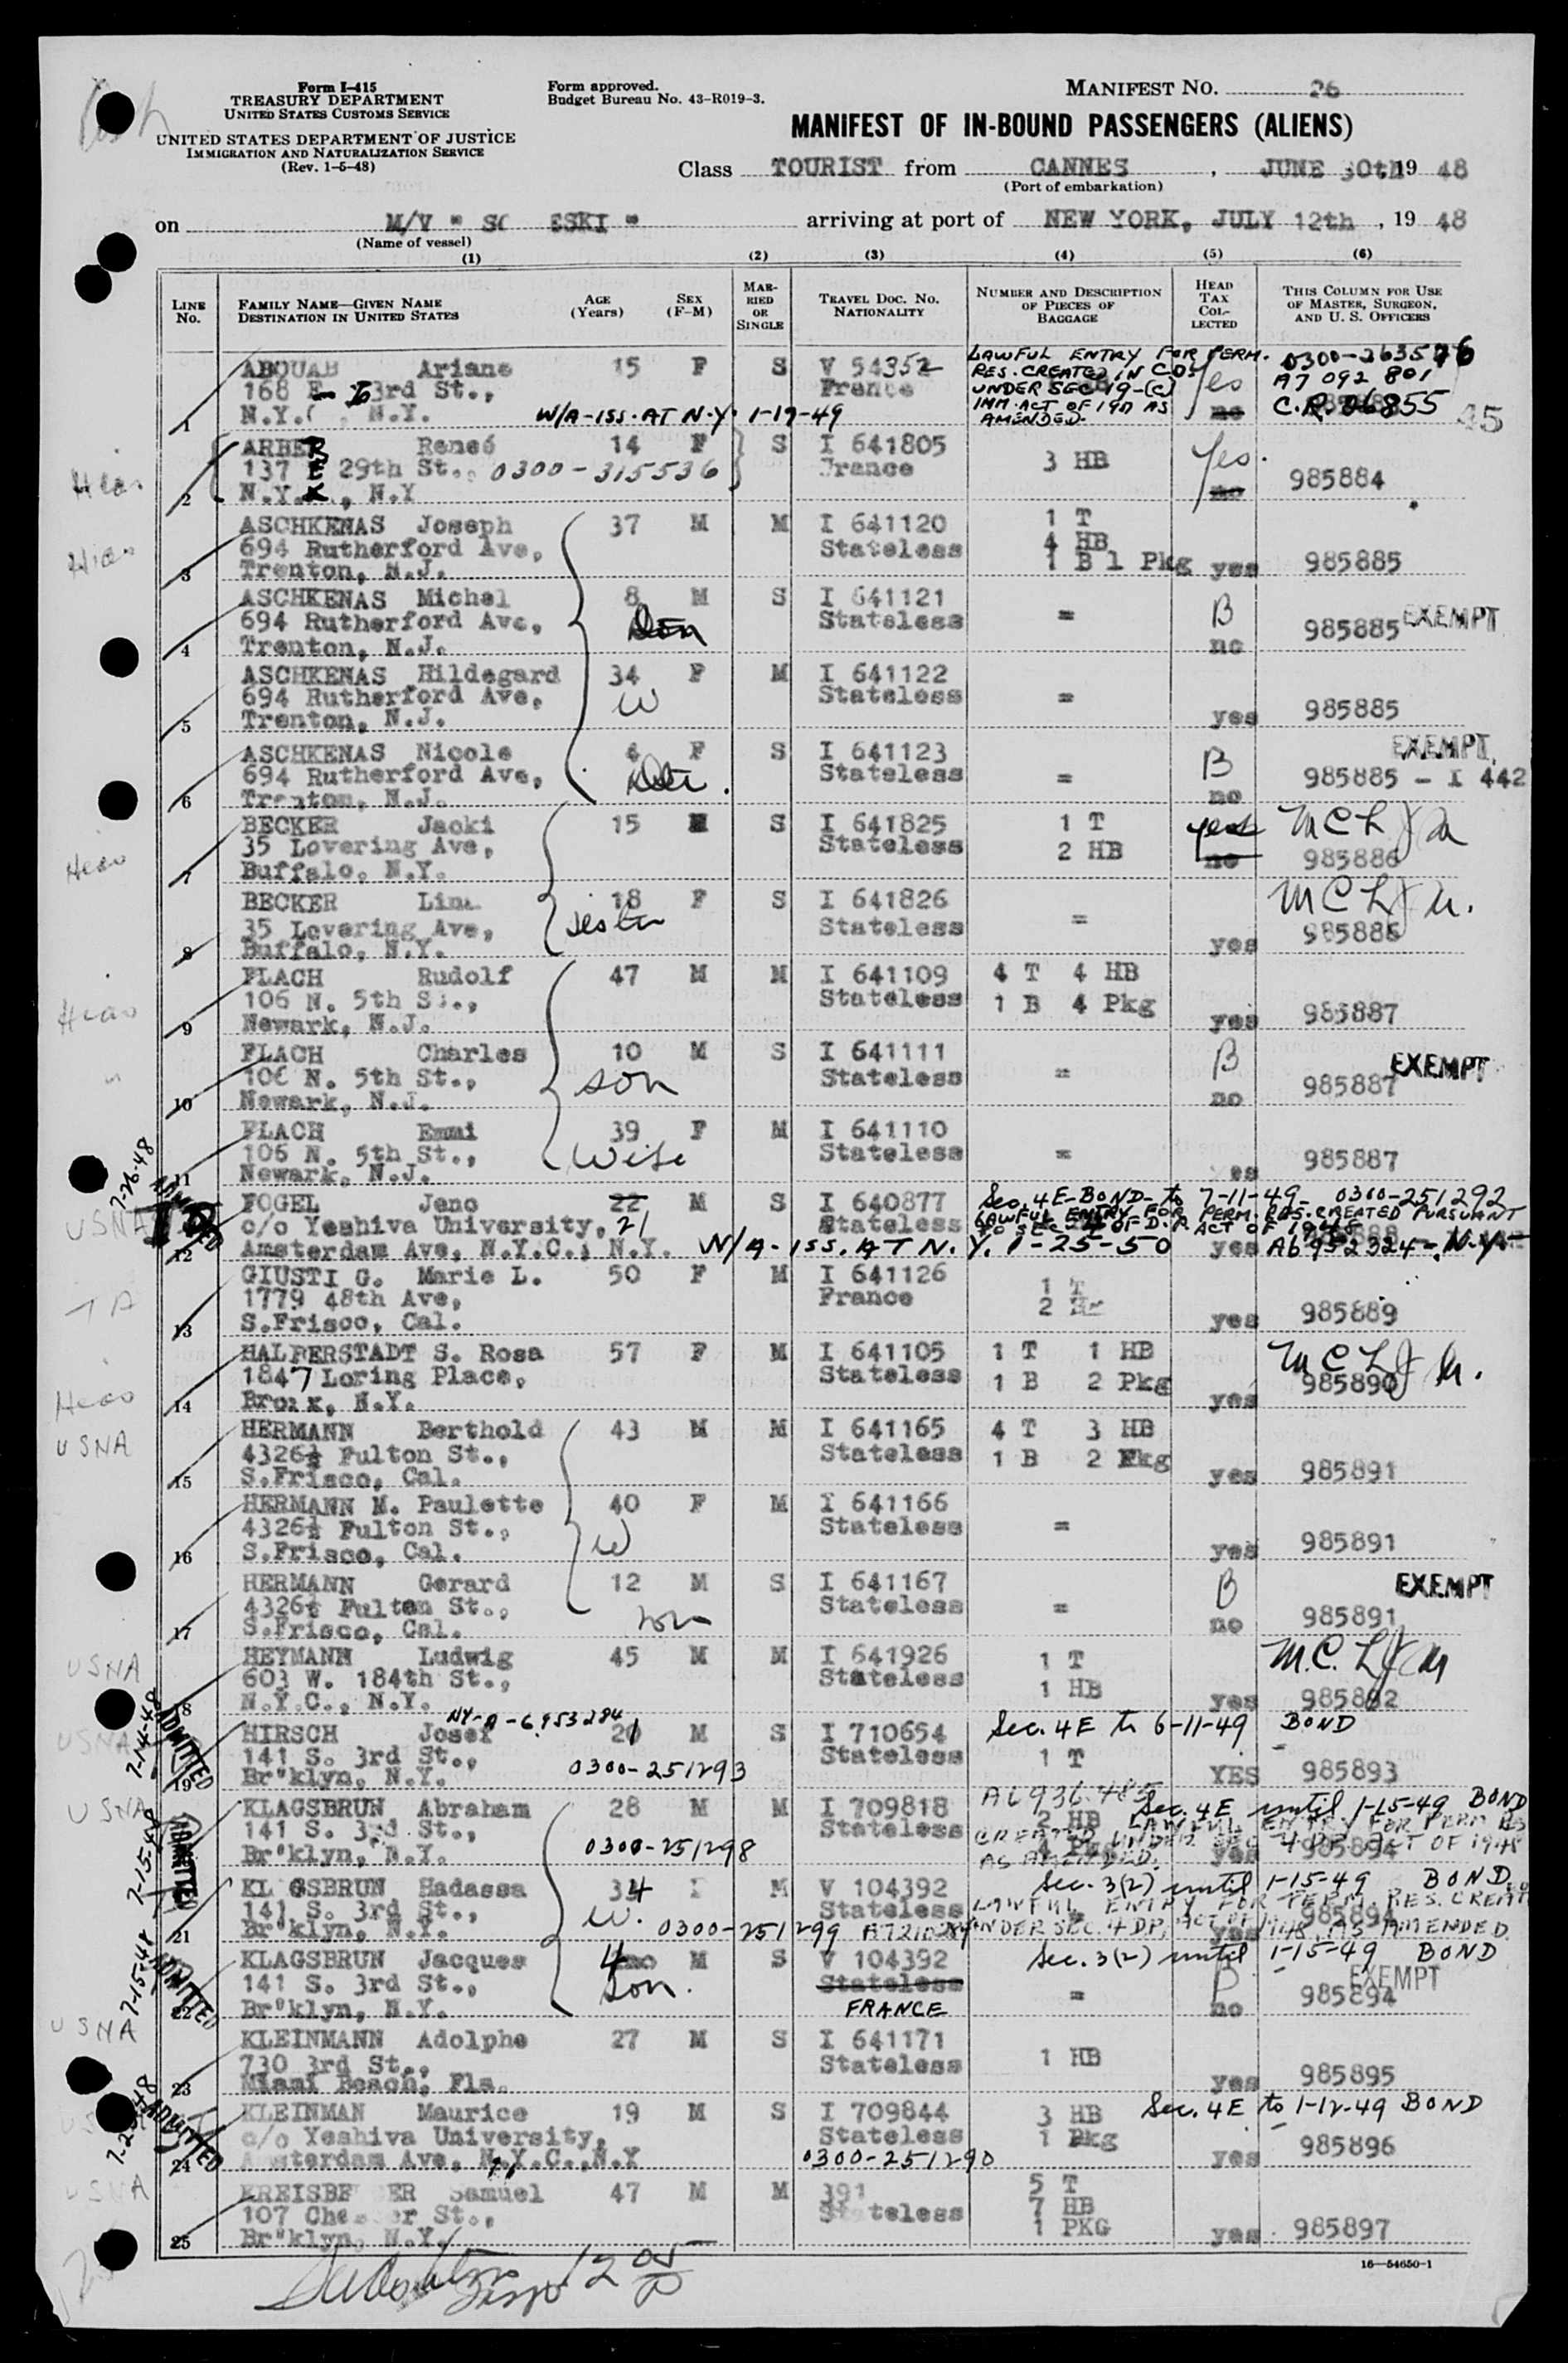 Form I-415
TREASURY DEPARTMENT
UNITED STATES CUSTOMS SERVICE
UNITED STATES DEPARTMENT OF JUSTICE
IMMIGRATION AND NATURALIZATION SERVICE
(Rev. 1-5-48)
Form approved.
Budget Bureau No. 43-R019-3.
MANIFEST NO. 26
MANIFEST OF IN-BOUND PASSENGERS (ALIENS)
Class TOURIST from CANNES, JUNE 30th 19 48
(Port of embarkation)
on M/V " SO ESKI " arriving at port of NEW YORK, JULY 12th, 19 48
(Name of vessel)
(1) (2) (3) (4) (5) (6)
LINE No. FAMILY NAME—GIVEN NAME DESTINATION IN UNITED STATES AGE (Years) SEX (F-M) MARRIED OR SINGLE TRAVEL DOC. NO. NATIONALITY NUMBER AND DESCRIPTION OF PIECES OF BAGGAGE HEAD TAX COLLECTED THIS COLUMN FOR USE OF MASTER, SURGEON, AND U. S. OFFICERS
ABOUAB Ariane 15 F S V 54352 LAWFUL ENTRY FOR PERM. 0300-263576
168 E- 3rd St., France RES. CREATED IN CO. Yes A7 092 801
UNDER SEC 19-(C) no C.R. 26855 45
1 N.Y.C., N.Y. W/A-ISS. AT N.Y. 1-19-49 IMM. ACT OF 1917 AS AMENDED.
ARBER Reneé 14 F S I 641805 3 HB Yes.
Hias 137 E 29th St., 0300-315536 France no 985884
2 N.Y., N.Y
ASCHKENAS Joseph 37 M M I 641120 1 T
Hias 694 Rutherford Ave, Stateless 4 HB
3 Trenton, N.J. 1 B 1 Pkg yes 985885
ASCHKENAS Michel 8 M S I 641121 = B
694 Rutherford Ave, Son Stateless 985885 EXEMPT
4 Trenton, N.J. no
ASCHKENAS Hildegard 34 F M I 641122
694 Rutherford Ave, W Stateless =
5 Trenton, N.J. yes 985885
ASCHKENAS Nicole 4 F S I 641123 B EXEMPT
694 Rutherford Ave, Dtr. Stateless = 985885 - I 442
6 Trenton, N.J. no
BECKER Jacki 15 M S I 641825 1 T yes
Hias 35 Lovering Ave, Stateless 2 HB no 985886
7 Buffalo, N.Y.
BECKER Lina 18 F S I 641826
35 Lovering Ave, sister Stateless = 985886
8 Buffalo, N.Y. yes
FLACH Rudolf 47 M M I 641109 4 T 4 HB
Hias 106 N. 5th St., Stateless 1 B 4 Pkg 985887
9 Newark, N.J. yes
FLACH Charles 10 M S I 641111 B EXEMPT
" 106 N. 5th St., son Stateless = 985887
10 Newark, N.J. no
FLACH Emmi 39 F M I 641110
106 N. 5th St., Wife Stateless = 985887
11 Newark, N.J. yes
7-26-48 ADMITTED
FOGEL Jeno 22 M S I 640877 Sec. 4E-BOND- to 7-11-49- 0300-251292
USNA c/o Yeshiva University, 21 Stateless LAWFUL ENTRY FOR PERM. RES. CREATED PURSUANT
TO SEC 4 OF D.P. ACT OF 1948
12 Amsterdam Ave, N.Y.C., N.Y. W/A-ISS. AT N.Y. 1-25-50 yes A6952324-N.Y.
GIUSTI G. Marie L. 50 F M I 641126 1 T
1779 48th Ave, France 2
13 S.Frisco, Cal. yes 985889
HALPERSTADT S. Rosa 57 F M I 641105 1 T 1 HB
Hias 1847 Loring Place, Stateless 1 B 2 Pkg 985890
14 Bronx, N.Y. yes
USNA HERMANN Berthold 43 M M I 641165 4 T 3 HB
4326½ Fulton St., Stateless 1 B 2 Pkg
15 S.Frisco, Cal. yes 985891
HERMANN M. Paulette 40 F M I 641166
4326½ Fulton St., W Stateless =
16 S.Frisco, Cal. yes 985891
HERMANN Gerard 12 M S I 641167 B EXEMPT
4326½ Fulton St., son Stateless = 985891
17 S.Frisco, Cal. no
USNA HEYMANN Ludwig 45 M M I 641926 1 T
603 W. 184th St., Stateless 1 HB
18 N.Y.C., N.Y. yes 985892
7-14-48 ADMITTED NY-A-6953284
USNA HIRSCH Josef 21 M S I 710654 Sec. 4E to 6-11-49 BOND
141 S. 3rd St., Stateless 1 T
19 Br"klyn, N.Y. 0300-251293 YES 985893
7-15-48 ADMITTED
USNA KLAGSBRUN Abraham 28 M M I 709818 A6936485 Sec. 4E until 1-15-49 BOND
141 S. 3rd St., Stateless 2 HB LAWFUL ENTRY FOR PERM RES
Br"klyn, N.Y. 0300-251298 CREATED UNDER SEC 4 DP ACT OF 1948 AS AMENDED. yes 985894
7-15-48
KL GSBRUN Hadassa 34 M V 104392 Sec. 3(2) until 1-15-49 BOND
141 S. 3rd St., W. Stateless LAWFUL ENTRY FOR PERM. RES. CREAT
21 Br"klyn, N.Y. 0300-251299 UNDER SEC. 4 DP. ACT OF 1948, AS AMENDED yes 985894
7-15-48 ADMITTED
KLAGSBRUN Jacques 4 M S V 104392 Sec. 3(2) until 1-15-49 BOND
141 S. 3rd St., Son. Stateless = B EXEMPT
22 Br"klyn, N.Y. FRANCE no 985894
USNA KLEINMANN Adolphe 27 M S I 641171
730 3rd St., Stateless 1 HB
23 Miami Beach, Fla. yes 985895
ADMITTED
KLEINMAN Maurice 19 M S I 709844 3 HB Sec. 4E to 1-12-49 BOND
c/o Yeshiva University, Stateless 1 Pkg
24 Amsterdam Ave, N.Y.C.,N.Y 0300-251290 yes 985896
USNA KREISBE ER Samuel 47 M M 391 5 T
107 St., Stateless 7 HB
25 Br"klyn, N.Y. 1 PKG yes 985897
16—54650-1